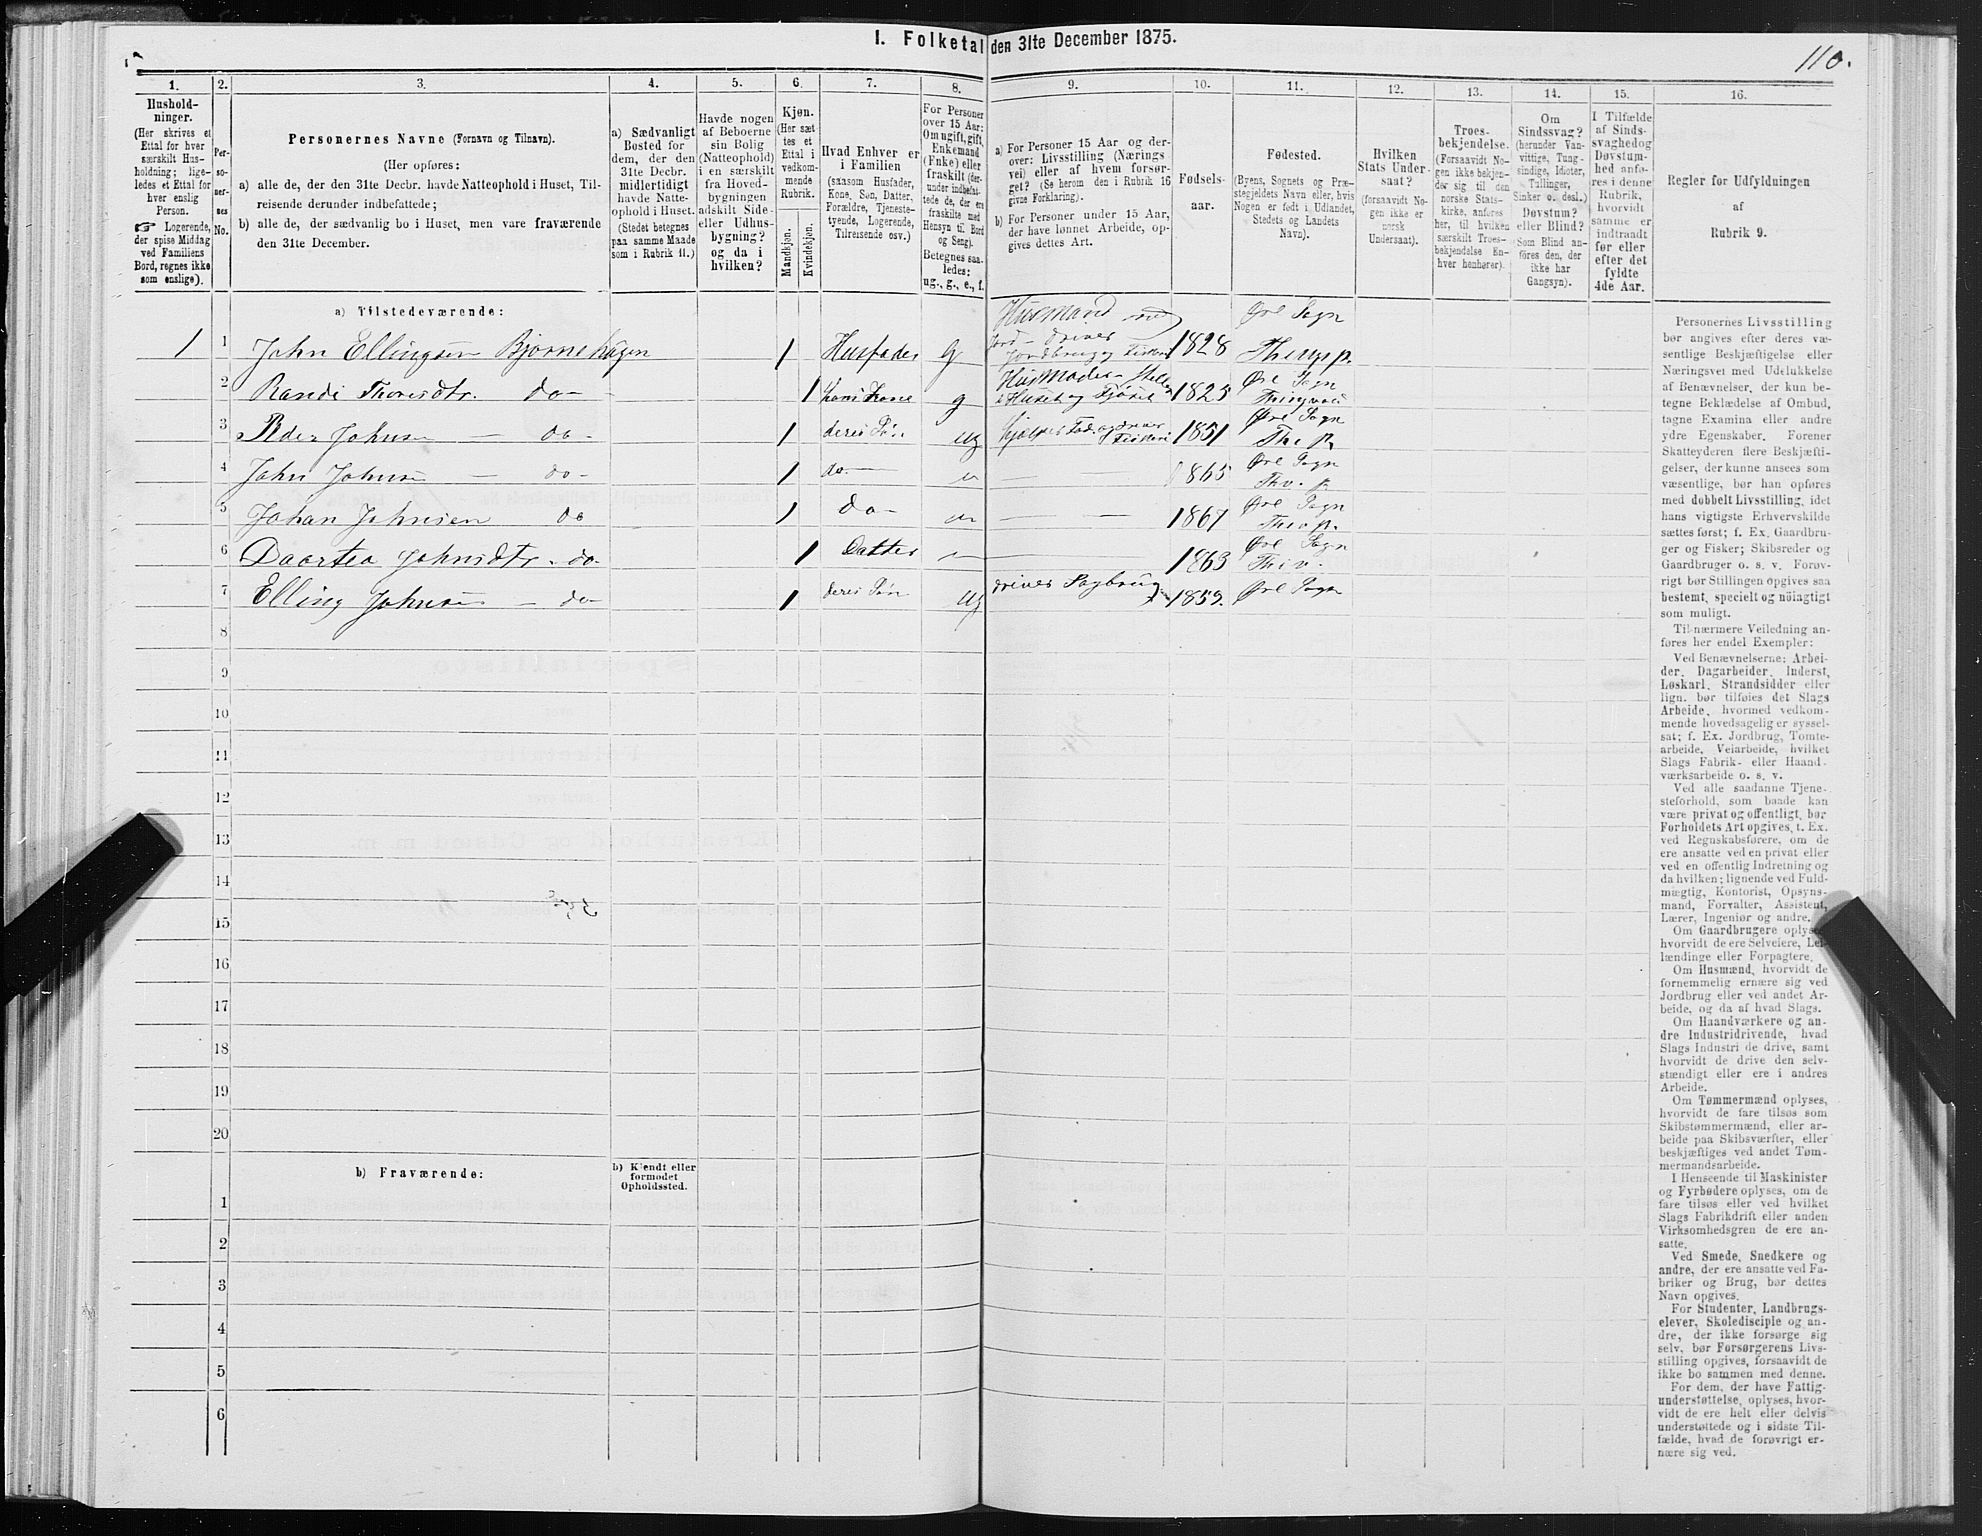 I. Folketal den 31te December 1875.
110.
1.
Hushold-
ninger.
(Her skrives et
Ettal for hver
særskilt Hus-
holdning; lige-
ledes et Ettal for
hver enslig
Person.
☞ Logerende,
der spise Middag
ved Familiens
Bord, regnes ikke
som enslige).
2.
Per-
so-
ner-
nes
No.
3.
Personernes Navne (Fornavn og Tilnavn).
(Her opføres:
a) alle de, der den 31te Decbr. havde Natteophold i Huset, Til-
reisende derunder indbefattede;
b) alle de, der sædvanlig bo i Huset, men vare fraværende
den 31te December.
4.
a) Sædvanligt
Bosted for
dem, der den
31te Decbr.
midlertidigt
havde Natte-
ophold i Huset.
(Stedet betegnes
paa samme Maade
som i Rubrik 11.)
5.
Havde nogen
af Beboerne
sin Bolig
(Natteophold)
i en særskilt
fra Hoved-
bygningen
adskilt Side-
eller Udhus-
bygning?
og da i
hvilken?
6.
Kjøn.
(Her sæt-
tes et
Ettal i
vedkom-
mende
Rubrik.
Mandkjøn.
Kvindekjøn.
7.
Hvad Enhver er
i Familien
(saasom Husfader,
Kone, Søn, Datter,
Forældre, Tjeneste-
tyende, Logerende,
Tilreisende osv.)
8.
For Personer
over 15 Aar:
Om ugift, gift,
Enkemand
(Enke) eller
fraskilt (der-
under indbefat-
tede de, der ere
fraskilte med
Hensyn til Bord
og Seng).
Betegnes saa-
ledes:
ug., g., e., f.
9.
a) For Personer 15 Aar og der-
over: Livsstilling (Nærings-
vei) eller af hvem forsør-
get? (Se herom den i Rubrik 16
givne Forklaring).
b) For Personer under 15 Aar,
der have lønnet Arbeide, op-
gives dettes Art.
10.
Fødsels-
aar.
11.
Fødested.
(Byens, Sognets og Præ-
stegjeldets Navn eller, hvis
Nogen er født i Udlandet,
Stedets og Landets
Navn).
12.
Hvilken
Stats Under-
saat?
(forsaavidt No-
gen ikke er
norsk
Undersaat).
13.
Troes-
bekjendelse.
(Forsaavidt No-
gen ikke bekjen-
der sig til den
norske Stats-
kirke, anføres
her, til hvilken
særskilt Troes-
bekjendelse En-
hver henhører).
14.
Om
Sindssvag?
(herunder Van-
vittige, Tung-
sindige, Idioter,
Tullinger,
Sinker o. desl.)
Døvstum?
eller Blind?
(Som Blind an-
føres den, der
ikke har
Gangsyn).
15.
I Tilfælde
af Sinds-
svaghed og
Døvstum-
hed anfø-
res i denne
Rubrik,
hvorvidt
samme er
indtraadt
før eller
efter det
fyldte
4de Aar.
16.
Regler for Udfyldningen
af
Rubrik 9.
a) Tilstedeværende:
Husmand med Øre Sogn
1 1 John Ellingsen Bjørnehagen 1 Husfader g Jord - driver Jordbrug og Fiskeri 1828
2 Randi Thoresdtr. do - 1 hans Kone g 1825 Øre Sogn Thingvold
3 Peder Johnsen - do - 1 deres Søn ug 1851 Øre Sogn
4 John Johnsen - do - 1 do - 1865 Øre Sogn
5 Johan Johnsen do 1 do - 1867 Øre Sogn
6 Daartea Johnsdtr. do - 1 Datter 1863 Øre Sogn
7 Elling Johnsen - do - 1 deres Søn ug driver Sagbrug 1859. Øre Sogn
8
9
10
11
12
13
14
15
16
17
18
19
20
b) Fraværende:
b) Kjendt eller
formodet
Opholdssted.
1
2
3
4
5
6
Personernes Livsstilling
bør angives efter deres væ-
sentlige Beskjæftigelse eller
Næringsvei med Udelukkelse
af Benævnelser, der kun be-
tegne Beklædelse af Ombud,
tagne Examina eller andre
ydre Egenskaber. Forener
Skatteyderen flere Beskjæfti-
gelser, der kunne ansees som
væsentlige, bør han opføres
med dobbelt Livsstilling, idet
hans vigtigste Erhvervskilde
sættes først; f. Ex. Gaardbru-
ger og Fisker; Skibsreder og
Gaardbruger o. s. v. Forøv-
rigt bør Stillingen opgives saa
bestemt, specielt og nöiagtigt
som muligt.
Til nærmere Veiledning an-
føres her endel Exempler:
Ved Benævnelserne: Arbei-
der, Dagarbeider, Inderst,
Løskarl, Strandsidder eller
lign. bør tilføies det Slags
Arbeide, hvormed vedkom-
mende hovedsagelig er syssel-
sat; f. Ex. Jordbrug, Tomte-
arbeide, Veiarbeide, hvilket
Slags Fabrik- eller Haand-
værksarbeide o. s. v.
Ved alle saadanne Tjene-
steforhold, som baade kan
være privat og offentligt, bør
Forholdets Art opgives, t. Ex.
ved Regnskabsførere, om de
ere ansatte ved en privat eller
ved en offentlig Indretning og
da hvilken; lignende ved Fuld-
mægtig, Kontorist, Opsyns-
mand, Forvalter, Assistent,
Lærer, Ingeniør og andre.
Om Gaardbrugere oplyses,
hvorvidt de ere Selveiere, Lei-
lændinge eller Forpagtere.
Om Husmænd, hvorvidt de
fornemmelig ernære sig ved
Jordbrug eller ved andet Ar-
beide, og da af hvad Slags.
Om Haandværkere og an-
dre Industridrivende, hvad
Slags Industri de drive, samt
hvorvidt de drive den selv-
stændigt eller ere i andres
Arbeide.
Om Tømmermænd oplyses,
hvorvidt de fare tilsøs som
Skibstømmermænd, eller ar-
beide paa Skibsværfter, eller
beskjæftiges ved andet Tøm-
mermandsarbeide.
I Henseende til Maskinister
og Fyrbødere oplyses, om de
fare tilsøs eller ved hvilket
Slags Fabrikdrift eller anden
Virksomhedsgren de ere an-
satte.
Ved Smede, Snedkere og
andre, der ere ansatte ved Fa-
briker og Brug, bør dettes
Navn opgives.
For Studenter, Landbrugs-
elever, Skoledisciple og an-
dre, der ikke forsørge sig
selv, bør Forsørgerens Livs-
stilling opgives, forsaavidt de
ikke bo sammen med denne.
For dem, der have Fattig-
understøttelse, oplyses, hvor-
vidt de ere helt eller delvis
understøttede og i sidste Til-
fælde, hvad de forøvrigt er-
nære sig ved.